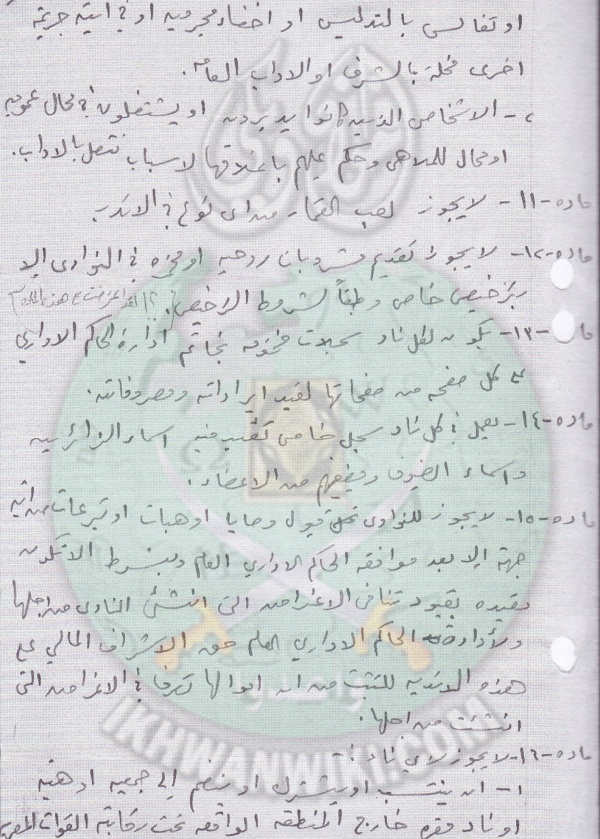 او تفالس بالتدليس او اخفاء مجرميه او فى اية جريمة
اخرى مخلة بالشرف او الاداب العامه.
٢- الاشخاص الذين كانوا يديرون او يشتغلون فى محال عموميه
او محال للملاهى وحكم عليهم باغلاقها لاسباب تتصل بالاداب.
ماده -١١- لا يجوز لعب القمار من اى نوع فى الانديه
ماده -١٢- لا يجوز تقديم مشروبات روحيه او مخدره فى النوادى الا
بترخيص خاص وطبقاً لشروط الترخيص.
ماده -١٣- يكون لكل ناد سجلات مختومه بخاتم ادارة الحاكم الادارى
على كل صفحه من صفحاتها لقيد ايراداته ومصروفاته.
ماده -١٤- يعمل فى كل ناد سجل خاص تكتب فيه اسماء الزائرين
واسماء الضيوف ومضيفهم من الاعضاء.
ماده -١٥- لا يجوز للنوادى قبول وصايا او هبات او تبرعات من ايه
جهة الا بعد موافقة الحاكم الادارى العام وبشرط الا تكون
مقيده بقيود تنافى الاغراض التى انشئ النادى من اجلها
ولأدارة الحاكم الادارى العام حق الاشراف المالي على
هذه الانديه للتثبت من ان اموالها تصرف فى الاغراض التى
انشئت من اجلها.
ماده -١٦- لا يجوز لاي ناد:
١- ان ينتسب او يشترك او ينضم إلى جمعيه او هيئه
او ناد مقره خارج المنطقه الواقعه تحت رقابة القوات المصريه
IKHWANWIKI.COM